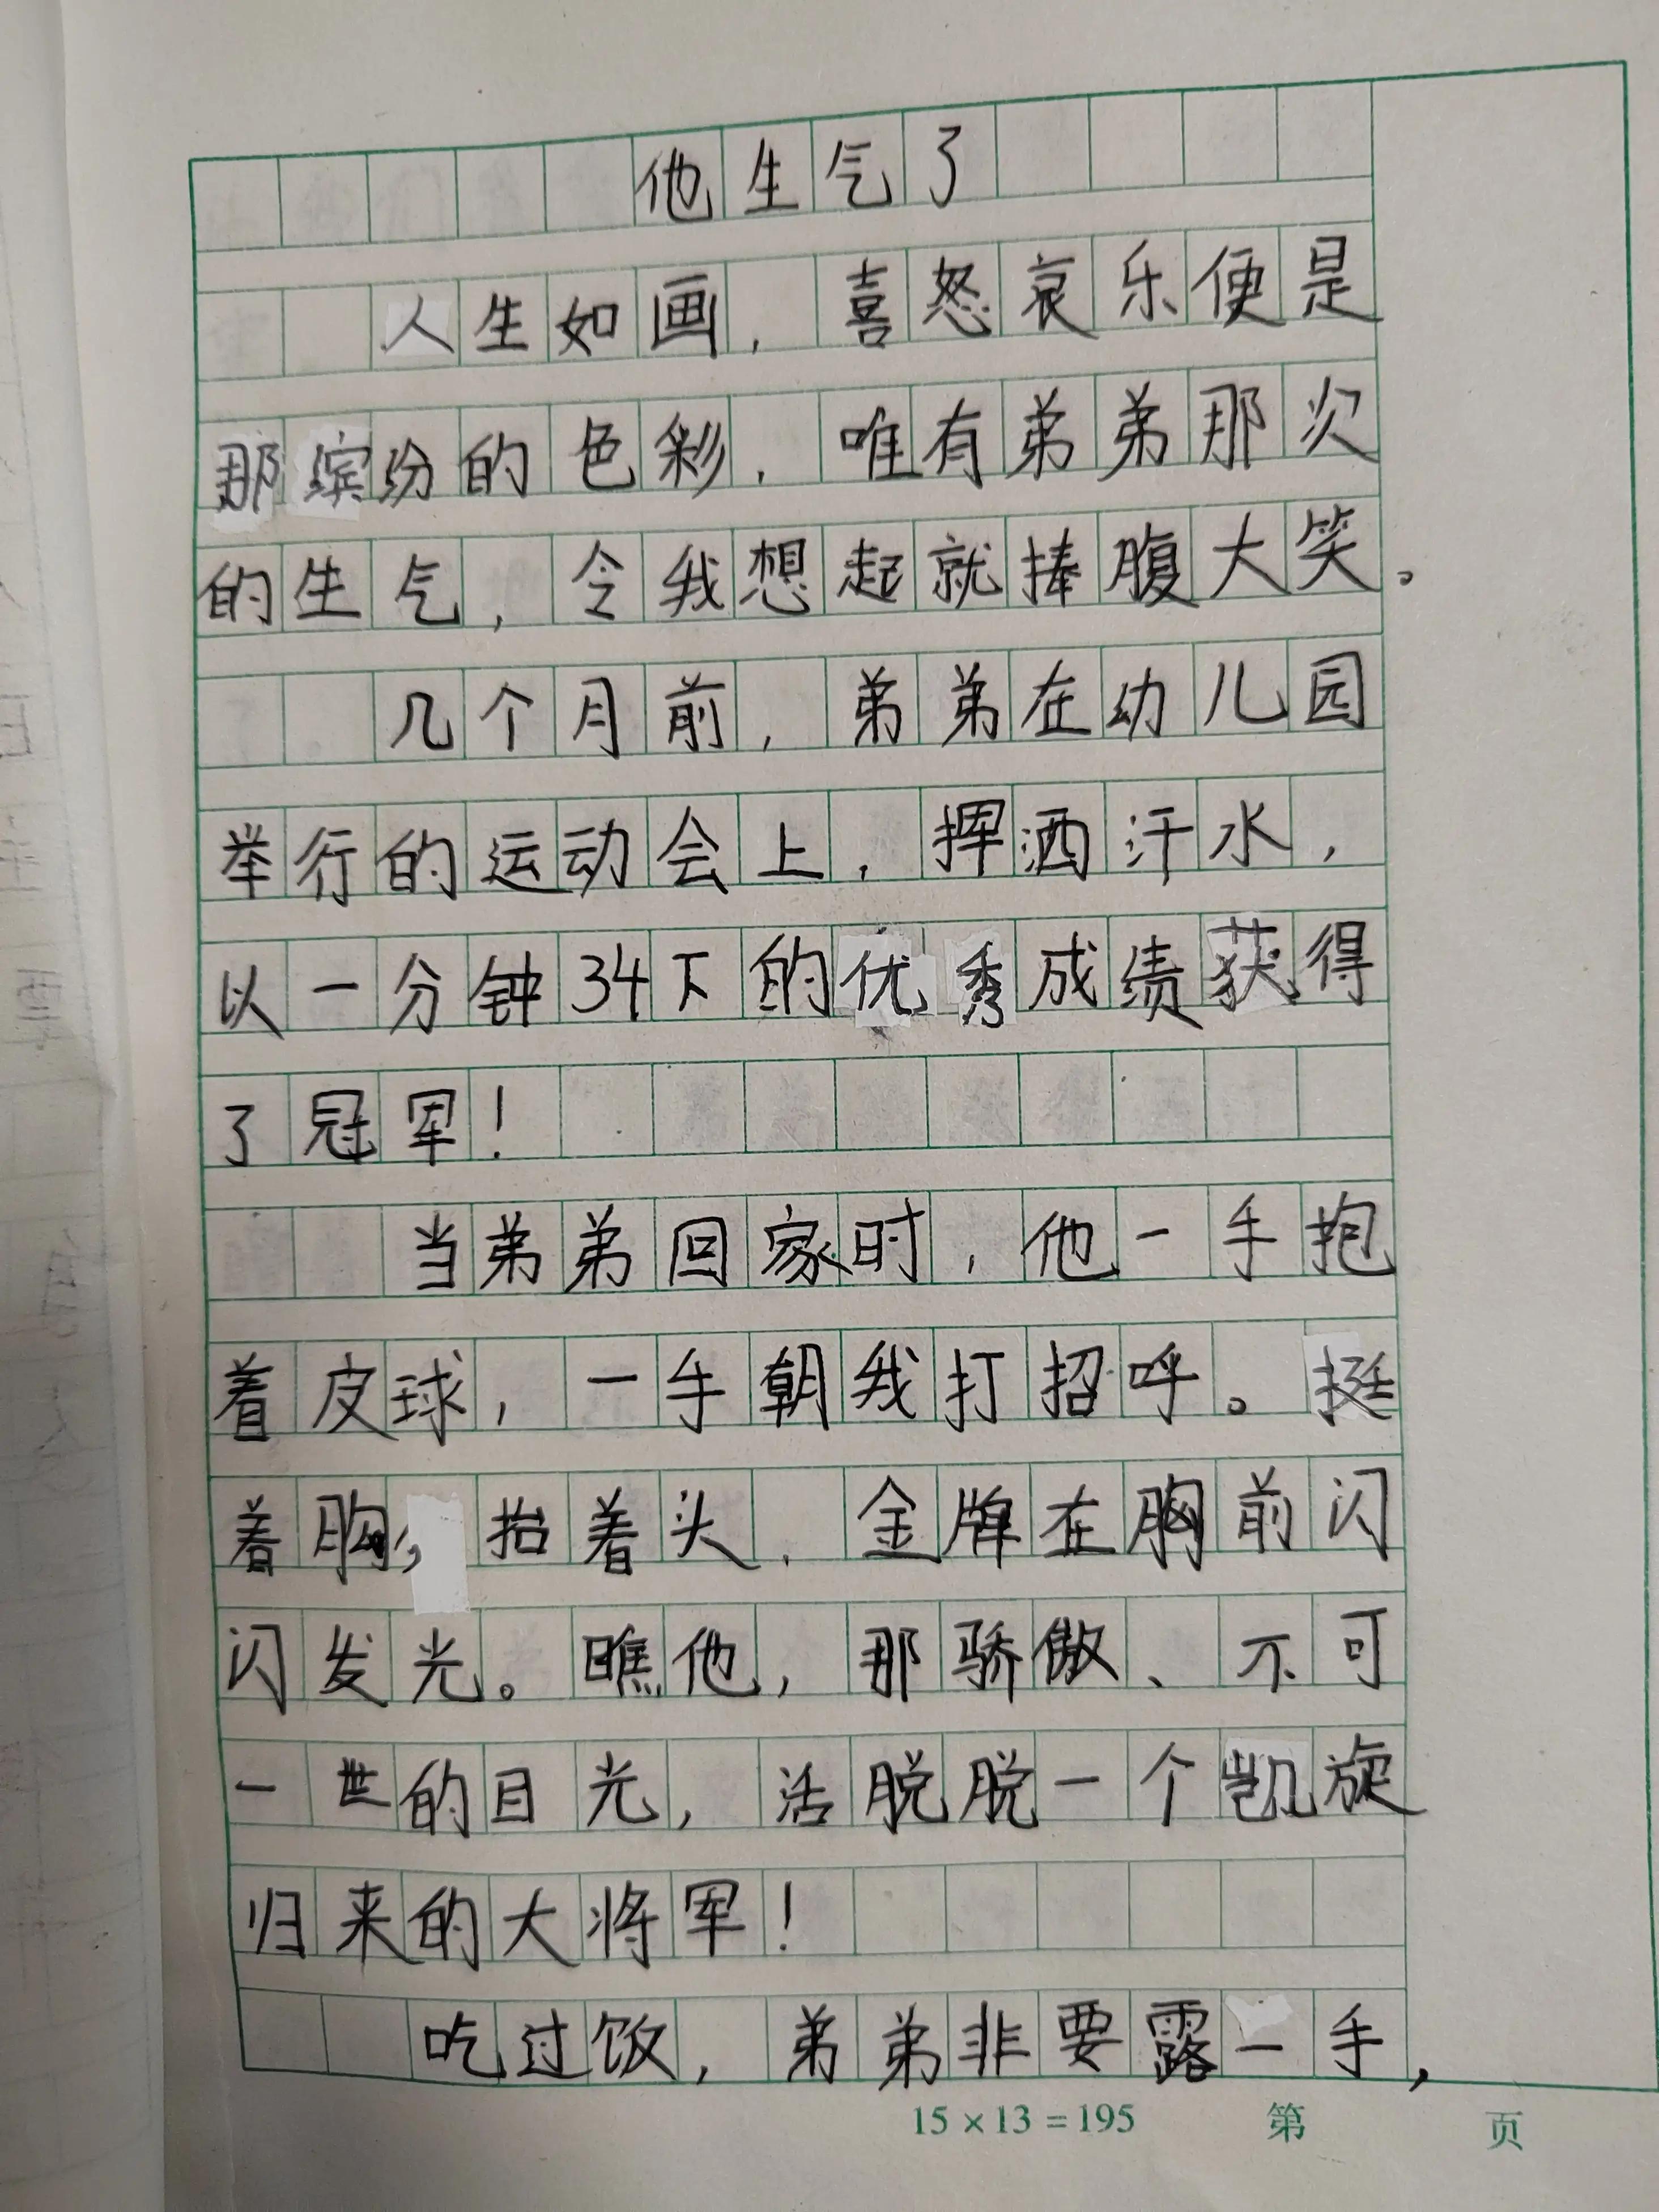 他生气了
人生如画，喜怒哀乐便是
那缤纷的色彩，唯有弟弟那次
的生气，令我想起就捧腹大笑。
几个月前，弟弟在幼儿园
举行的运动会上，挥洒汗水，
以一分钟34下的优秀成绩获得
了冠军！
当弟弟回家时，他一手抱
着皮球，一手朝我打招呼。挺
着胸，抬着头，金牌在胸前闪
闪发光。瞧他，那骄傲、不可
一世的目光，活脱脱一个凯旋
归来的大将军！
吃过饭，弟弟非要露一手，
15×13=195 第 页